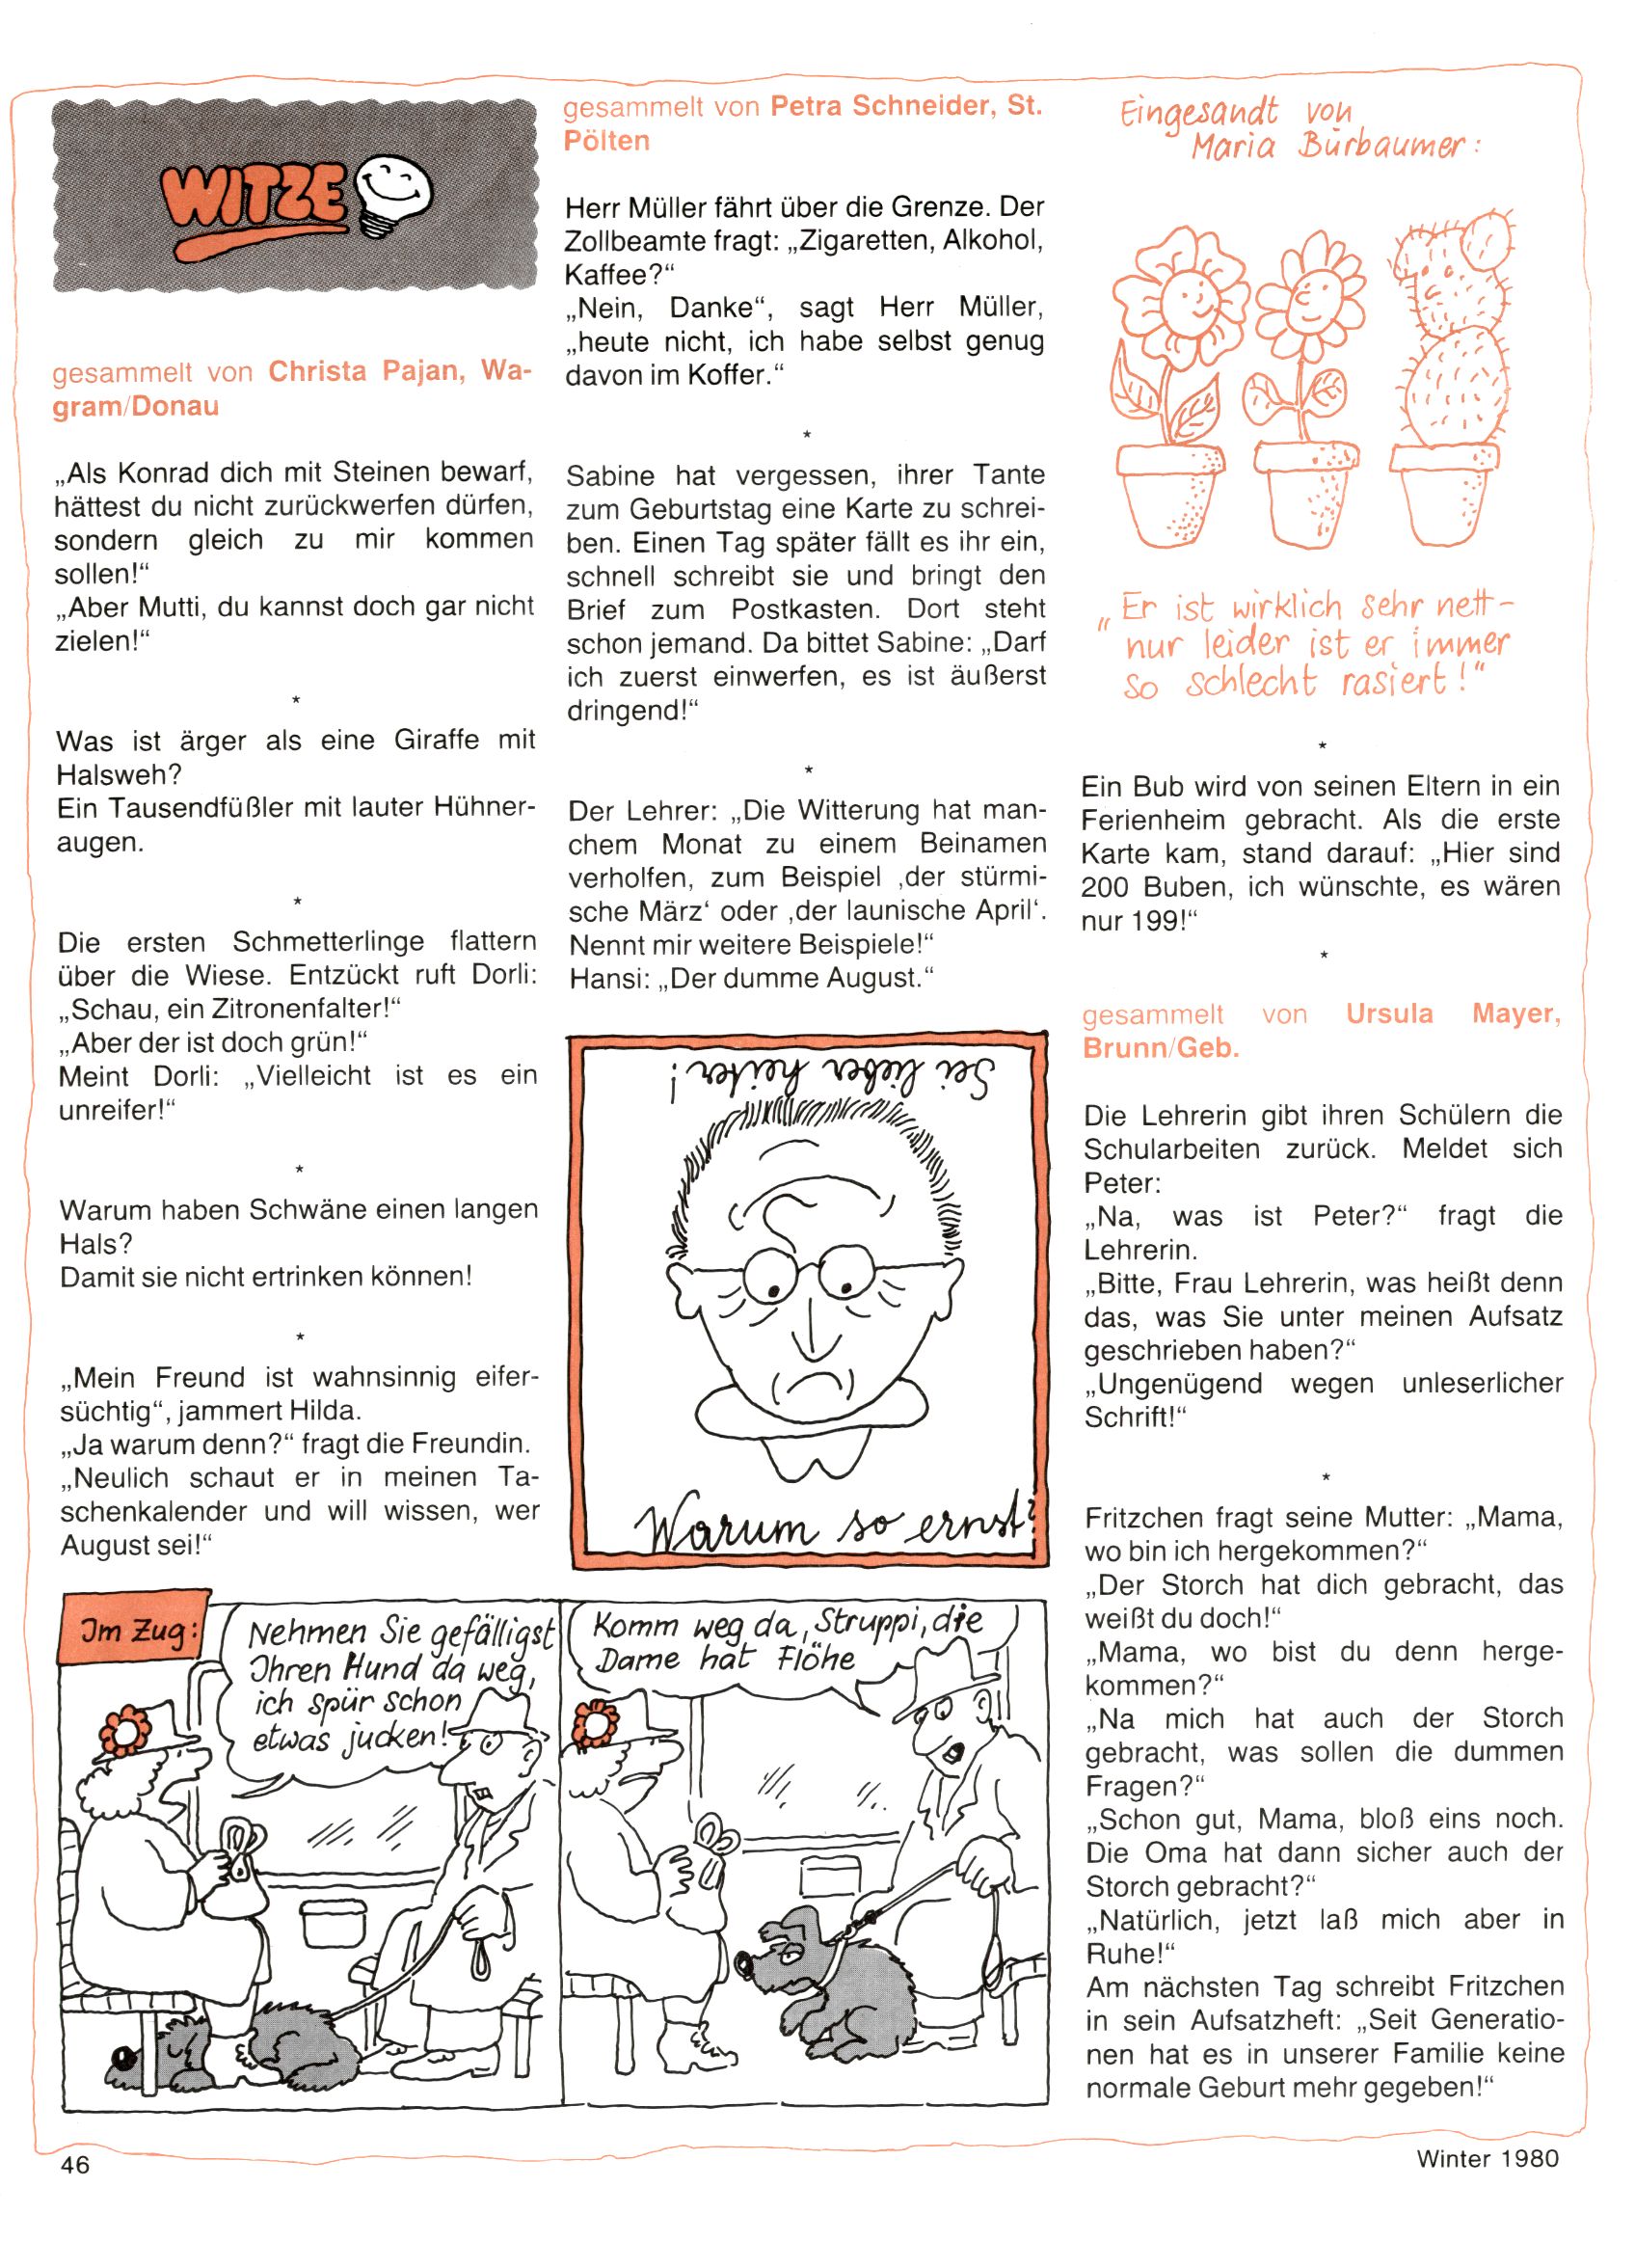 WITZE
gesammelt von Christa Pajan, Wa-
gram/Donau
„Als Konrad dich mit Steinen bewarf,
hättest du nicht zurückwerfen dürfen,
sondern gleich zu mir kommen
sollen!“
„Aber Mutti, du kannst doch gar nicht
zielen!“
*
Was ist ärger als eine Giraffe mit
Halsweh?
Ein Tausendfüßler mit lauter Hühner-
augen.
*
Die ersten Schmetterlinge flattern
über die Wiese. Entzückt ruft Dorli:
„Schau, ein Zitronenfalter!“
„Aber der ist doch grün!“
Meint Dorli: „Vielleicht ist es ein
unreifer!“
*
Warum haben Schwäne einen langen
Hals?
Damit sie nicht ertrinken können!
*
„Mein Freund ist wahnsinnig eifer-
süchtig“, jammert Hilda.
„Ja warum denn?“ fragt die Freundin.
„Neulich schaut er in meinen Ta-
schenkalender und will wissen, wer
August sei!“
gesammelt von Petra Schneider, St.
Pölten
Herr Müller fährt über die Grenze. Der
Zollbeamte fragt: „Zigaretten, Alkohol,
Kaffee?“
„Nein, Danke“, sagt Herr Müller,
„heute nicht, ich habe selbst genug
davon im Koffer.“
*
Sabine hat vergessen, ihrer Tante
zum Geburtstag eine Karte zu schrei-
ben. Einen Tag später fällt es ihr ein,
schnell schreibt sie und bringt den
Brief zum Postkasten. Dort steht
schon jemand. Da bittet Sabine: „Darf
ich zuerst einwerfen, es ist äußerst
dringend!“
*
Der Lehrer: „Die Witterung hat man-
chem Monat zu einem Beinamen
verholfen, zum Beispiel ‚der stürmi-
sche März‘ oder ‚der launische April‘.
Nennt mir weitere Beispiele!“
Hansi: „Der dumme August.“
Sei lieber heiter!
Warum so ernst?
Im Zug:
Nehmen Sie gefälligst
Ihren Hund da weg,
ich spür schon
etwas jucken!
Komm weg da, Struppi, die
Dame hat Flöhe
Eingesandt von
Maria Bürbaumer:
„Er ist wirklich sehr nett-
nur leider ist er immer
so schlecht rasiert!“
*
Ein Bub wird von seinen Eltern in ein
Ferienheim gebracht. Als die erste
Karte kam, stand darauf: „Hier sind
200 Buben, ich wünschte, es wären
nur 199!“
*
gesammelt von Ursula Mayer,
Brunn/Geb.
Die Lehrerin gibt ihren Schülern die
Schularbeiten zurück. Meldet sich
Peter:
„Na, was ist Peter?“ fragt die
Lehrerin.
„Bitte, Frau Lehrerin, was heißt denn
das, was Sie unter meinen Aufsatz
geschrieben haben?“
„Ungenügend wegen unleserlicher
Schrift!“
*
Fritzchen fragt seine Mutter: „Mama,
wo bin ich hergekommen?“
„Der Storch hat dich gebracht, das
weißt du doch!“
„Mama, wo bist du denn herge-
kommen?“
„Na mich hat auch der Storch
gebracht, was sollen die dummen
Fragen?“
„Schon gut, Mama, bloß eins noch.
Die Oma hat dann sicher auch der
Storch gebracht?“
„Natürlich, jetzt laß mich aber in
Ruhe!“
Am nächsten Tag schreibt Fritzchen
in sein Aufsatzheft: „Seit Generatio-
nen hat es in unserer Familie keine
normale Geburt mehr gegeben!“
46
Winter 1980